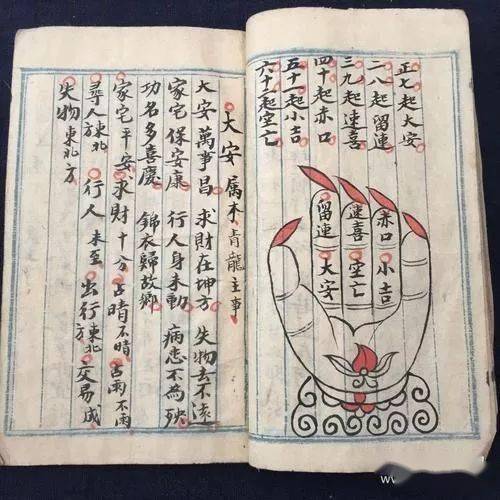 正七起大安
二八起留連
三九起速喜
四十起赤口
五十一起小吉
六十二起空亡
留連
速喜
赤口
大安
空亡
小吉
大安 屬木青龍主事
大安萬事昌 求財在坤方 失物去不遠
家宅保安康 行人身未動 病患不為殃
功名多喜慶 錦衣歸故鄉
家宅平安 求財十分 占晴不晴 占雨不雨
尋人東北 行人未至 出行東北方 交易成
失物東北方
w